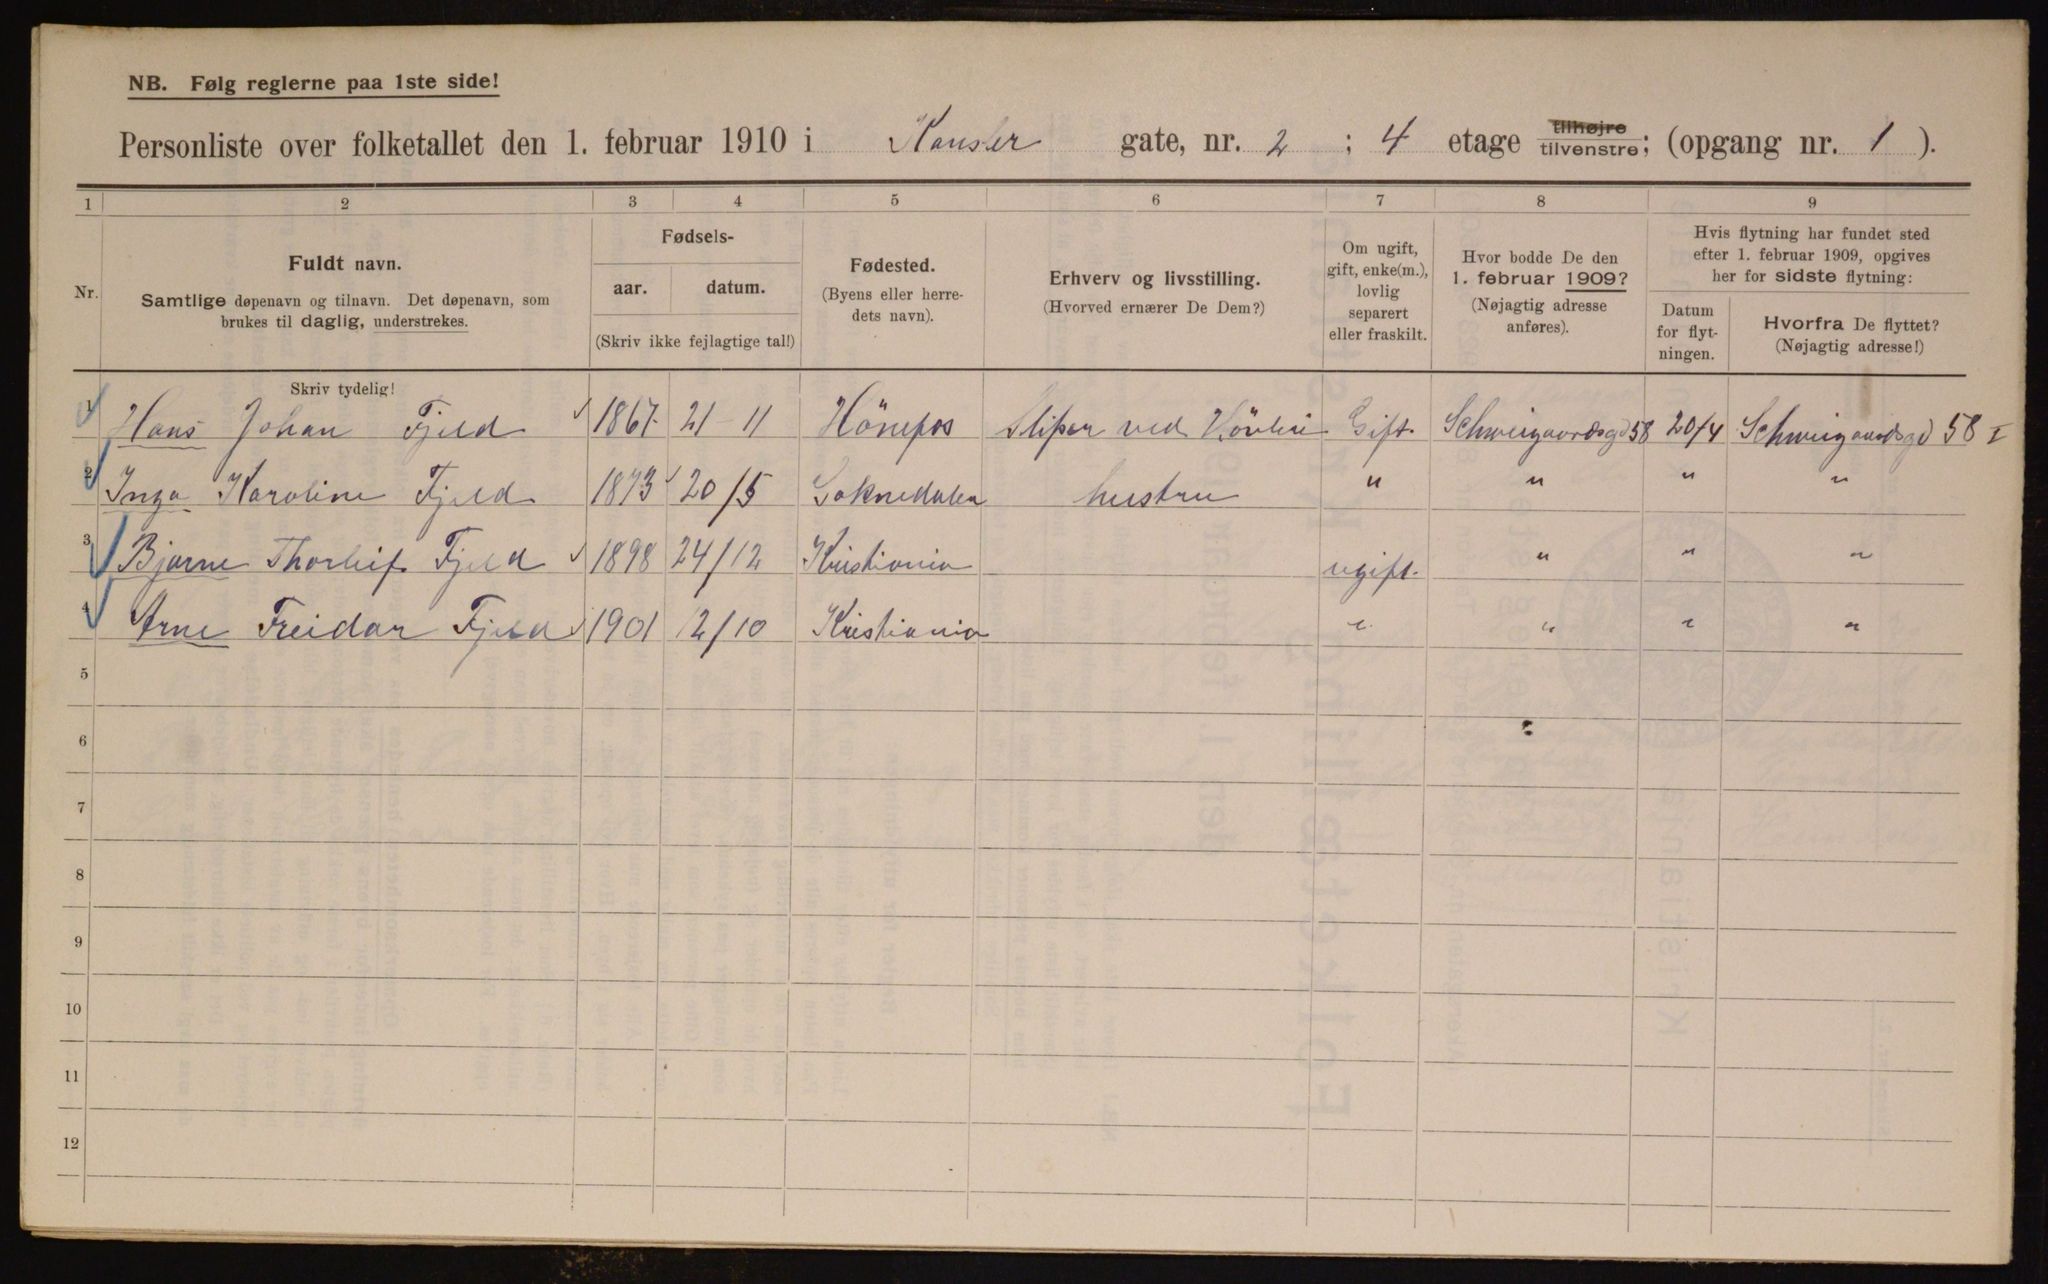 NB. Følg reglerne paa 1ste side!
Personliste over folketallet den 1. februar 1910 i Kansler gate, nr. 2 ; 4 etage tilhøjre tilvenstre; (opgang nr. 1 ).
1 2 3 4 5 6 7 8 9
Nr.
Fuldt navn.
Samtlige døpenavn og tilnavn. Det døpenavn, som
brukes til daglig, understrekes.
Fødsels-
aar. datum.
(Skriv ikke fejlagtige tal!)
Fødested.
(Byens eller herre-
dets navn).
Erhverv og livsstilling.
(Hvorved ernærer De Dem?)
Om ugift,
gift, enke(m.),
lovlig
separert
eller fraskilt.
Hvor bodde De den
1. februar 1909?
(Nøjagtig adresse
anføres).
Hvis flytning har fundet sted
efter 1. februar 1909, opgives
her for sidste flytning:
Datum
for flyt-
ningen.
Hvorfra De flyttet?
(Nøjagtig adresse!)
Skriv tydelig!
1 Hans Johan Fjeld 1867 21-11 Hönefos Sliper ved Gift. Schweigaardsgd 58 20/4 Schweigaardsgd 58 I
2 Inga Karoline Fjeld 1873 20/5 Soknedalen hustru " " " "
3 Bjarne Thorleif Fjeld 1898 24/12 Kristiania ugift. " " "
4 Arne Freidar Fjeld 1901 12/10 Kristiania " " " "
5
6
7
8
9
10
11
12